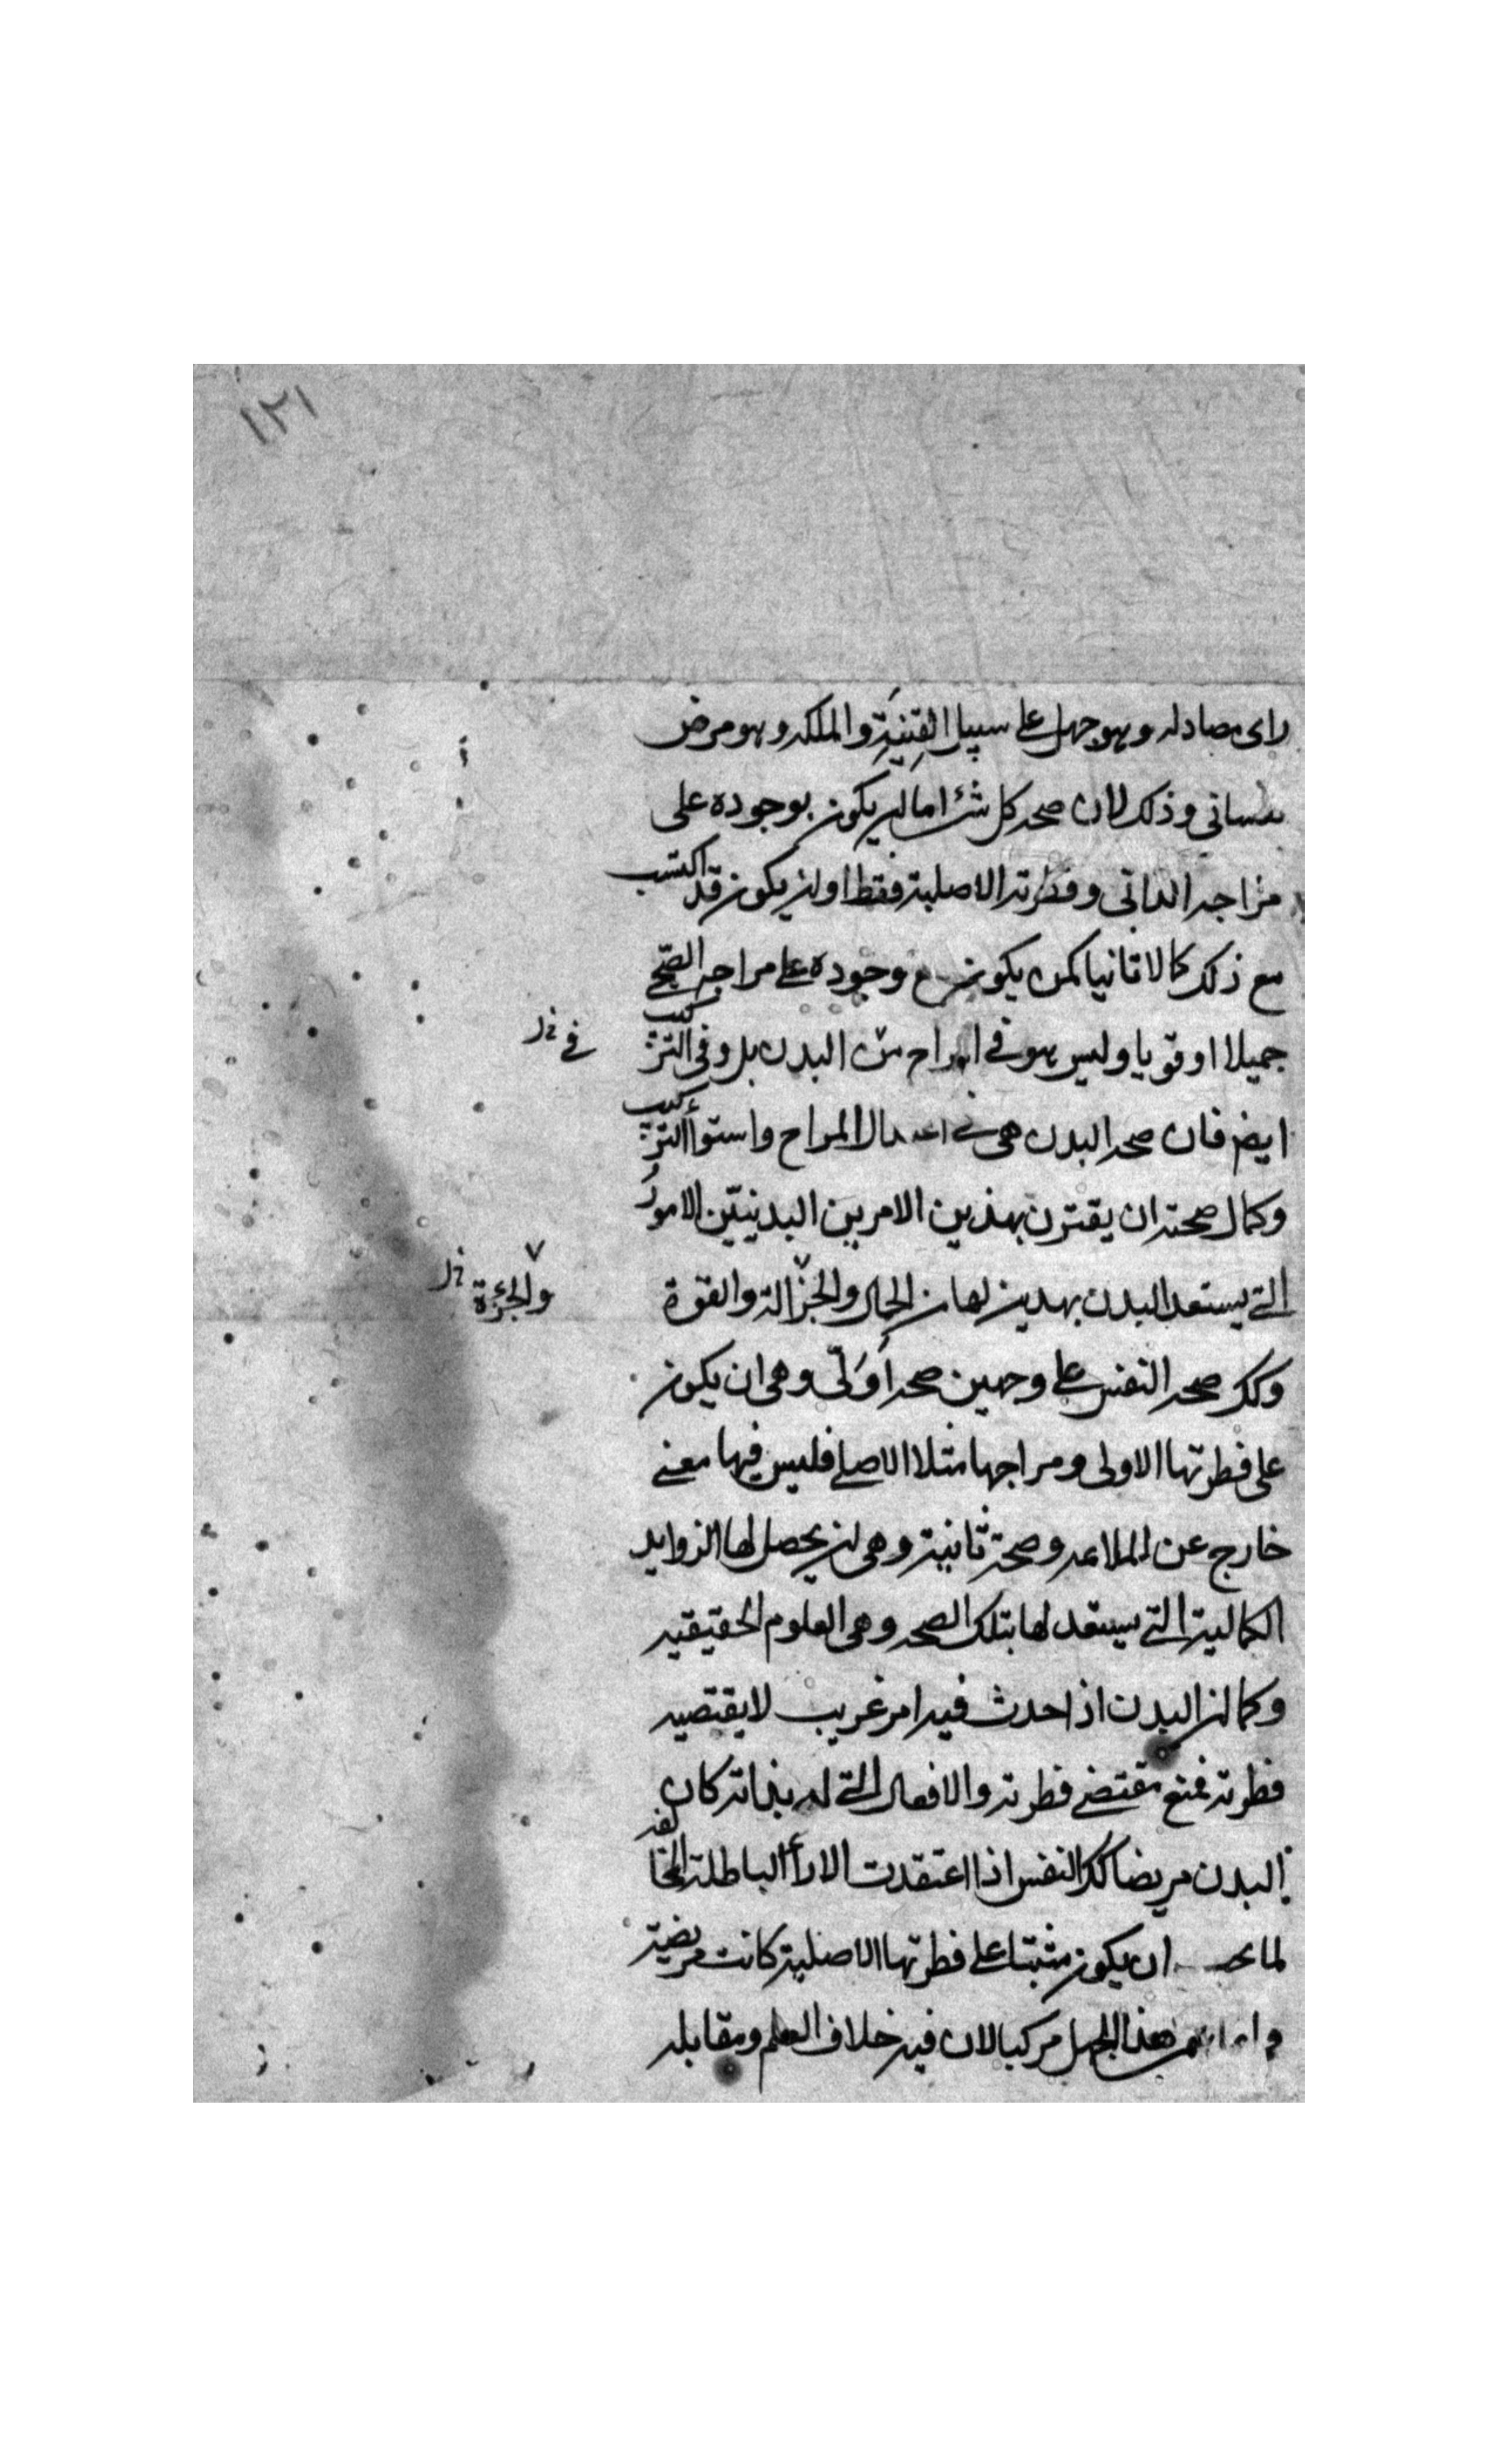 ١٢١
راى مضاد له وهو جهل على سبيل القِنْيَة والملكه وهو مرض
نفسانى وذلك لان صحه كل شئ اما ان يكون بوجوده على
مزاجه الذاتى وفطرته الاصلية فقط او ان يكون قد اكتسب
مع ذلك كمالا ثانيا كمن يكون مع وجوده على مزاجه الصحى
جميلا او قويا وليس هو فى المزاح من البدن بل وفى التركيب
فى
ايض فان صحه البدن هى فى اعتدال المزاح واستوأ التركيب
وكمال صحته ان يقترن بهذين الامرين البدنيّين الامور
التى يستعد البدن بهذين لها من الجمال والجزالة والقوة
والجرءة
وكك صحه النفس على وجهين صحه اَوّلى وهى ان يكون
على فطرتها الاولى ومزاجها مثلا الاصلى فليس فيها معنى
خارج عن الملاءمه وصحة ثانية وهى ان يحصل لها الزوايد
الكمالية التى يستعد لها بتلك الصحه وهى العلوم الحقيقيه
وكما ان البدن اذا حدث فيه امر غريب لا يقتضيه
فطرته فمنع مقتضى فطرته والافعال التى له بذاته كان
البدن مريضا كك النفس اذا اعتقدت الارأ الباطلة المخالفه
لما يجب ان يكون مثبتا على فطرتها الاصلية كانت مريضة
وانما هذا الجهل مركبا لان فيه خلاف العلم ومقابله